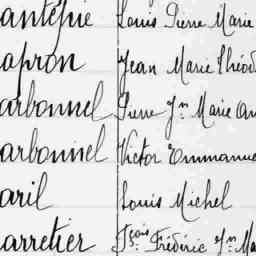 antepie Louis Pierre Marie
apron Jean Marie Théod
arbonnel Pierre Jn Marie An
arbonnel Victor Emmanue
aril Louis Michel
arretier Fçois Frédéric Jn Ma